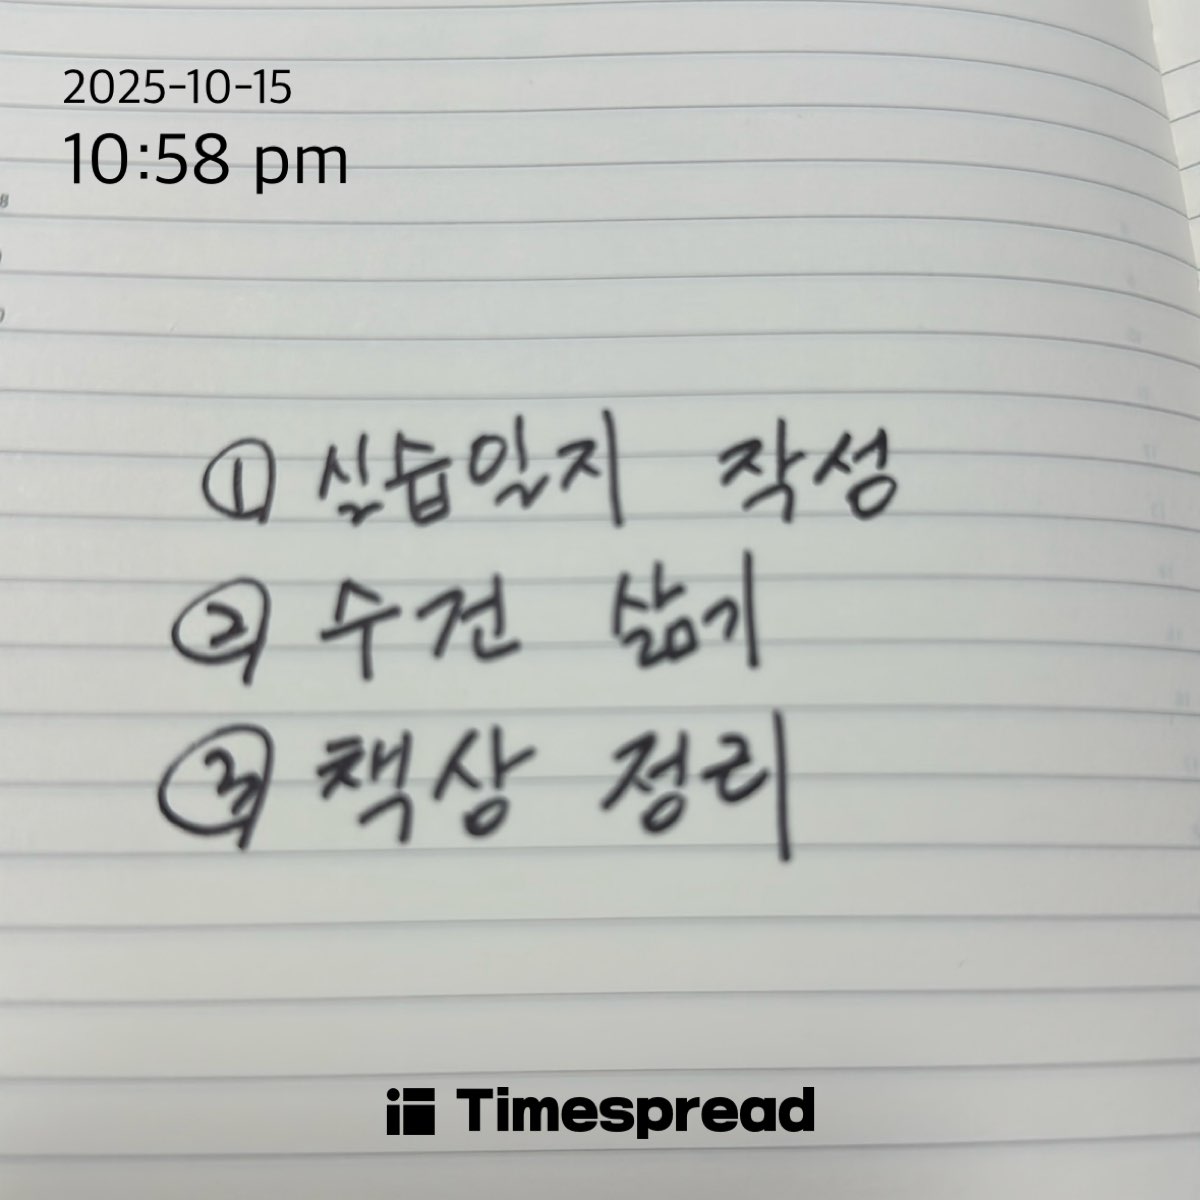 2025-10-15
10:58 pm
① 실습일지 작성
② 수건 삶기
③ 책상 정리
Timespread